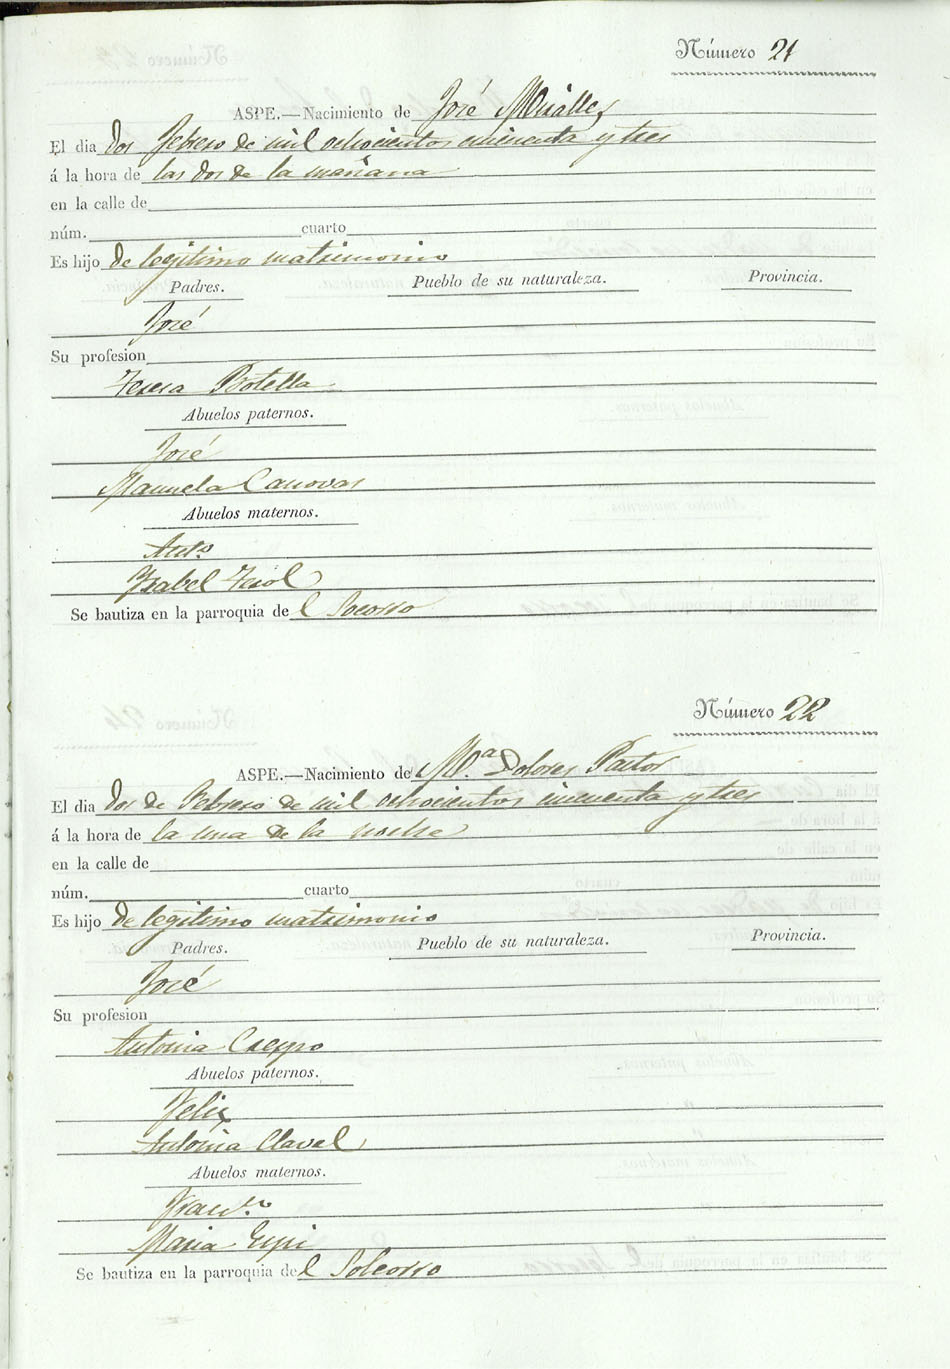 Número 21
ASPE.—Nacimiento de José Miralles
El dia dos febrero de mil ochocientos cincuenta y tres
á la hora de las dos de la mañana
en la calle de
núm. cuarto
Es hijo de legitimo matrimonio
Padres. Pueblo de su naturaleza. Provincia.
José
Su profesion
Teresa Botella
Abuelos paternos.
José
Manuela Canovas
Abuelos maternos.
Anto
Ysabel
Se bautiza en la parroquia de l Socorro
Número 22
ASPE.—Nacimiento de Mª Dolores Pastor
El dia dos de Febrero de mil ochocientos cincuenta y tres
á la hora de la una de la noche
en la calle de
núm. cuarto
Es hijo de legitimo matrimonio
Padres. Pueblo de su naturaleza. Provincia.
José
Su profesion
Antonia Crespo
Abuelos paternos.
Felix
Antonia Clavel
Abuelos maternos.
Franco
Maria
Se bautiza en la parroquia de l Solcorro